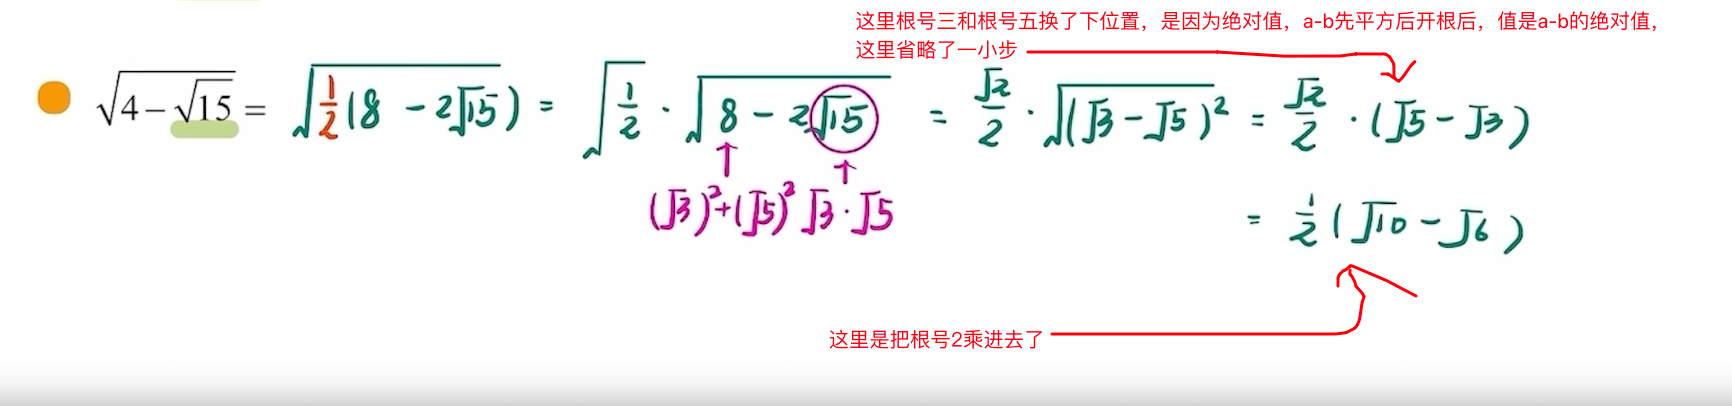 这里根号三和根号五换了下位置，是因为绝对值，a-b先平方后开根后，值是a-b的绝对值，
这里省略了一小步
√(4-√15) = √(1/2(8-2√15)) = √(1/2) · √(8-2√15) = √2/2 · √((√3-√5)²) = √2/2 · (√5-√3)
(√3)²+(√5)² √3·√5
= 1/2(√10-√6)
这里是把根号2乘进去了